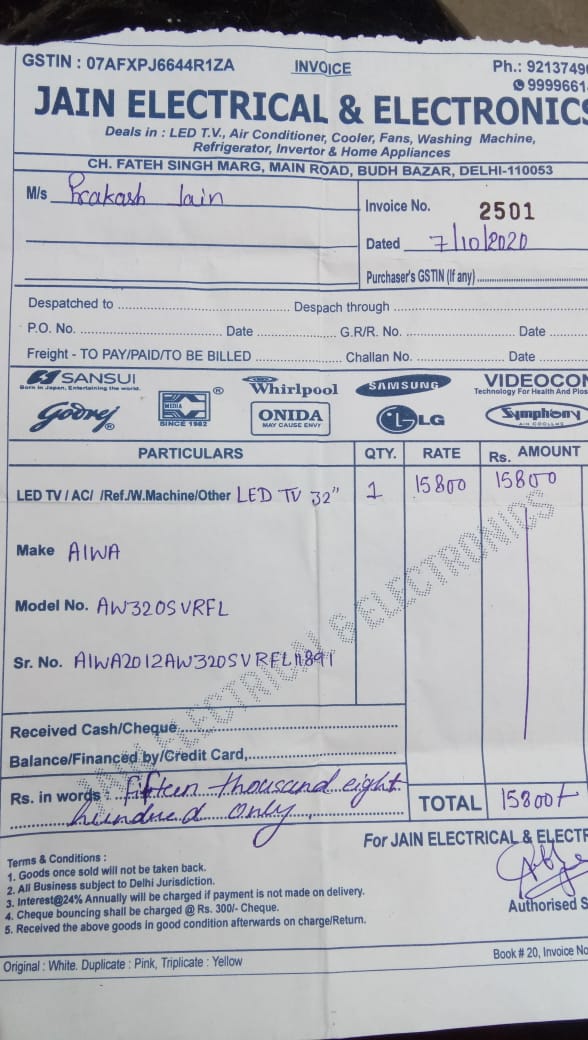 GSTIN : 07AFXPJ6644R1ZA INVOICE Ph.: 9213749
9999661
JAIN ELECTRICAL & ELECTRONICS
Deals in : LED T.V., Air Conditioner, Cooler, Fans, Washing Machine,
Refrigerator, Invertor & Home Appliances
CH. FATEH SINGH MARG, MAIN ROAD, BUDH BAZAR, DELHI-110053
M/s Prakash Jain
Invoice No. 2501
Dated 7/10/2020
Purchaser's GSTIN (If any)
Despatched to Despach through
P.O. No. Date G.R/R. No. Date
Freight - TO PAY/PAID/TO BE BILLED Challan No. Date
SANSUI Whirlpool SAMSUNG VIDEOCON
Born in Japan, Entertaining the world. Technology For Health And
Godrej MEDIA SINCE 1982 ONIDA LG Symphony
MAY CAUSE ENVY AIR COOLERS
PARTICULARS QTY. RATE Rs. AMOUNT
LED TV / AC/ /Ref./W.Machine/Other LED TV 32" 1 15800 15800
Make AIWA
Model No. AW320SVRFL
Sr. No. AIWA2012AW320SVRFL11891
JAIN ELECTRICAL & ELECTRONICS
Received Cash/Cheque
Balance/Financed by/Credit Card,
Rs. in words : fifteen thousand eight
hundred only.
TOTAL 15800/-
For JAIN ELECTRICAL & ELECTR
Terms & Conditions :
1. Goods once sold will not be taken back.
2. All Business subject to Delhi Jurisdiction.
3. Interest@24% Annually will be charged if payment is not made on delivery.
4. Cheque bouncing shall be charged @ Rs. 300/- Cheque.
5. Received the above goods in good condition afterwards on charge/Return.
Authorised S
Original : White. Duplicate : Pink, Triplicate : Yellow Book # 20, Invoice No